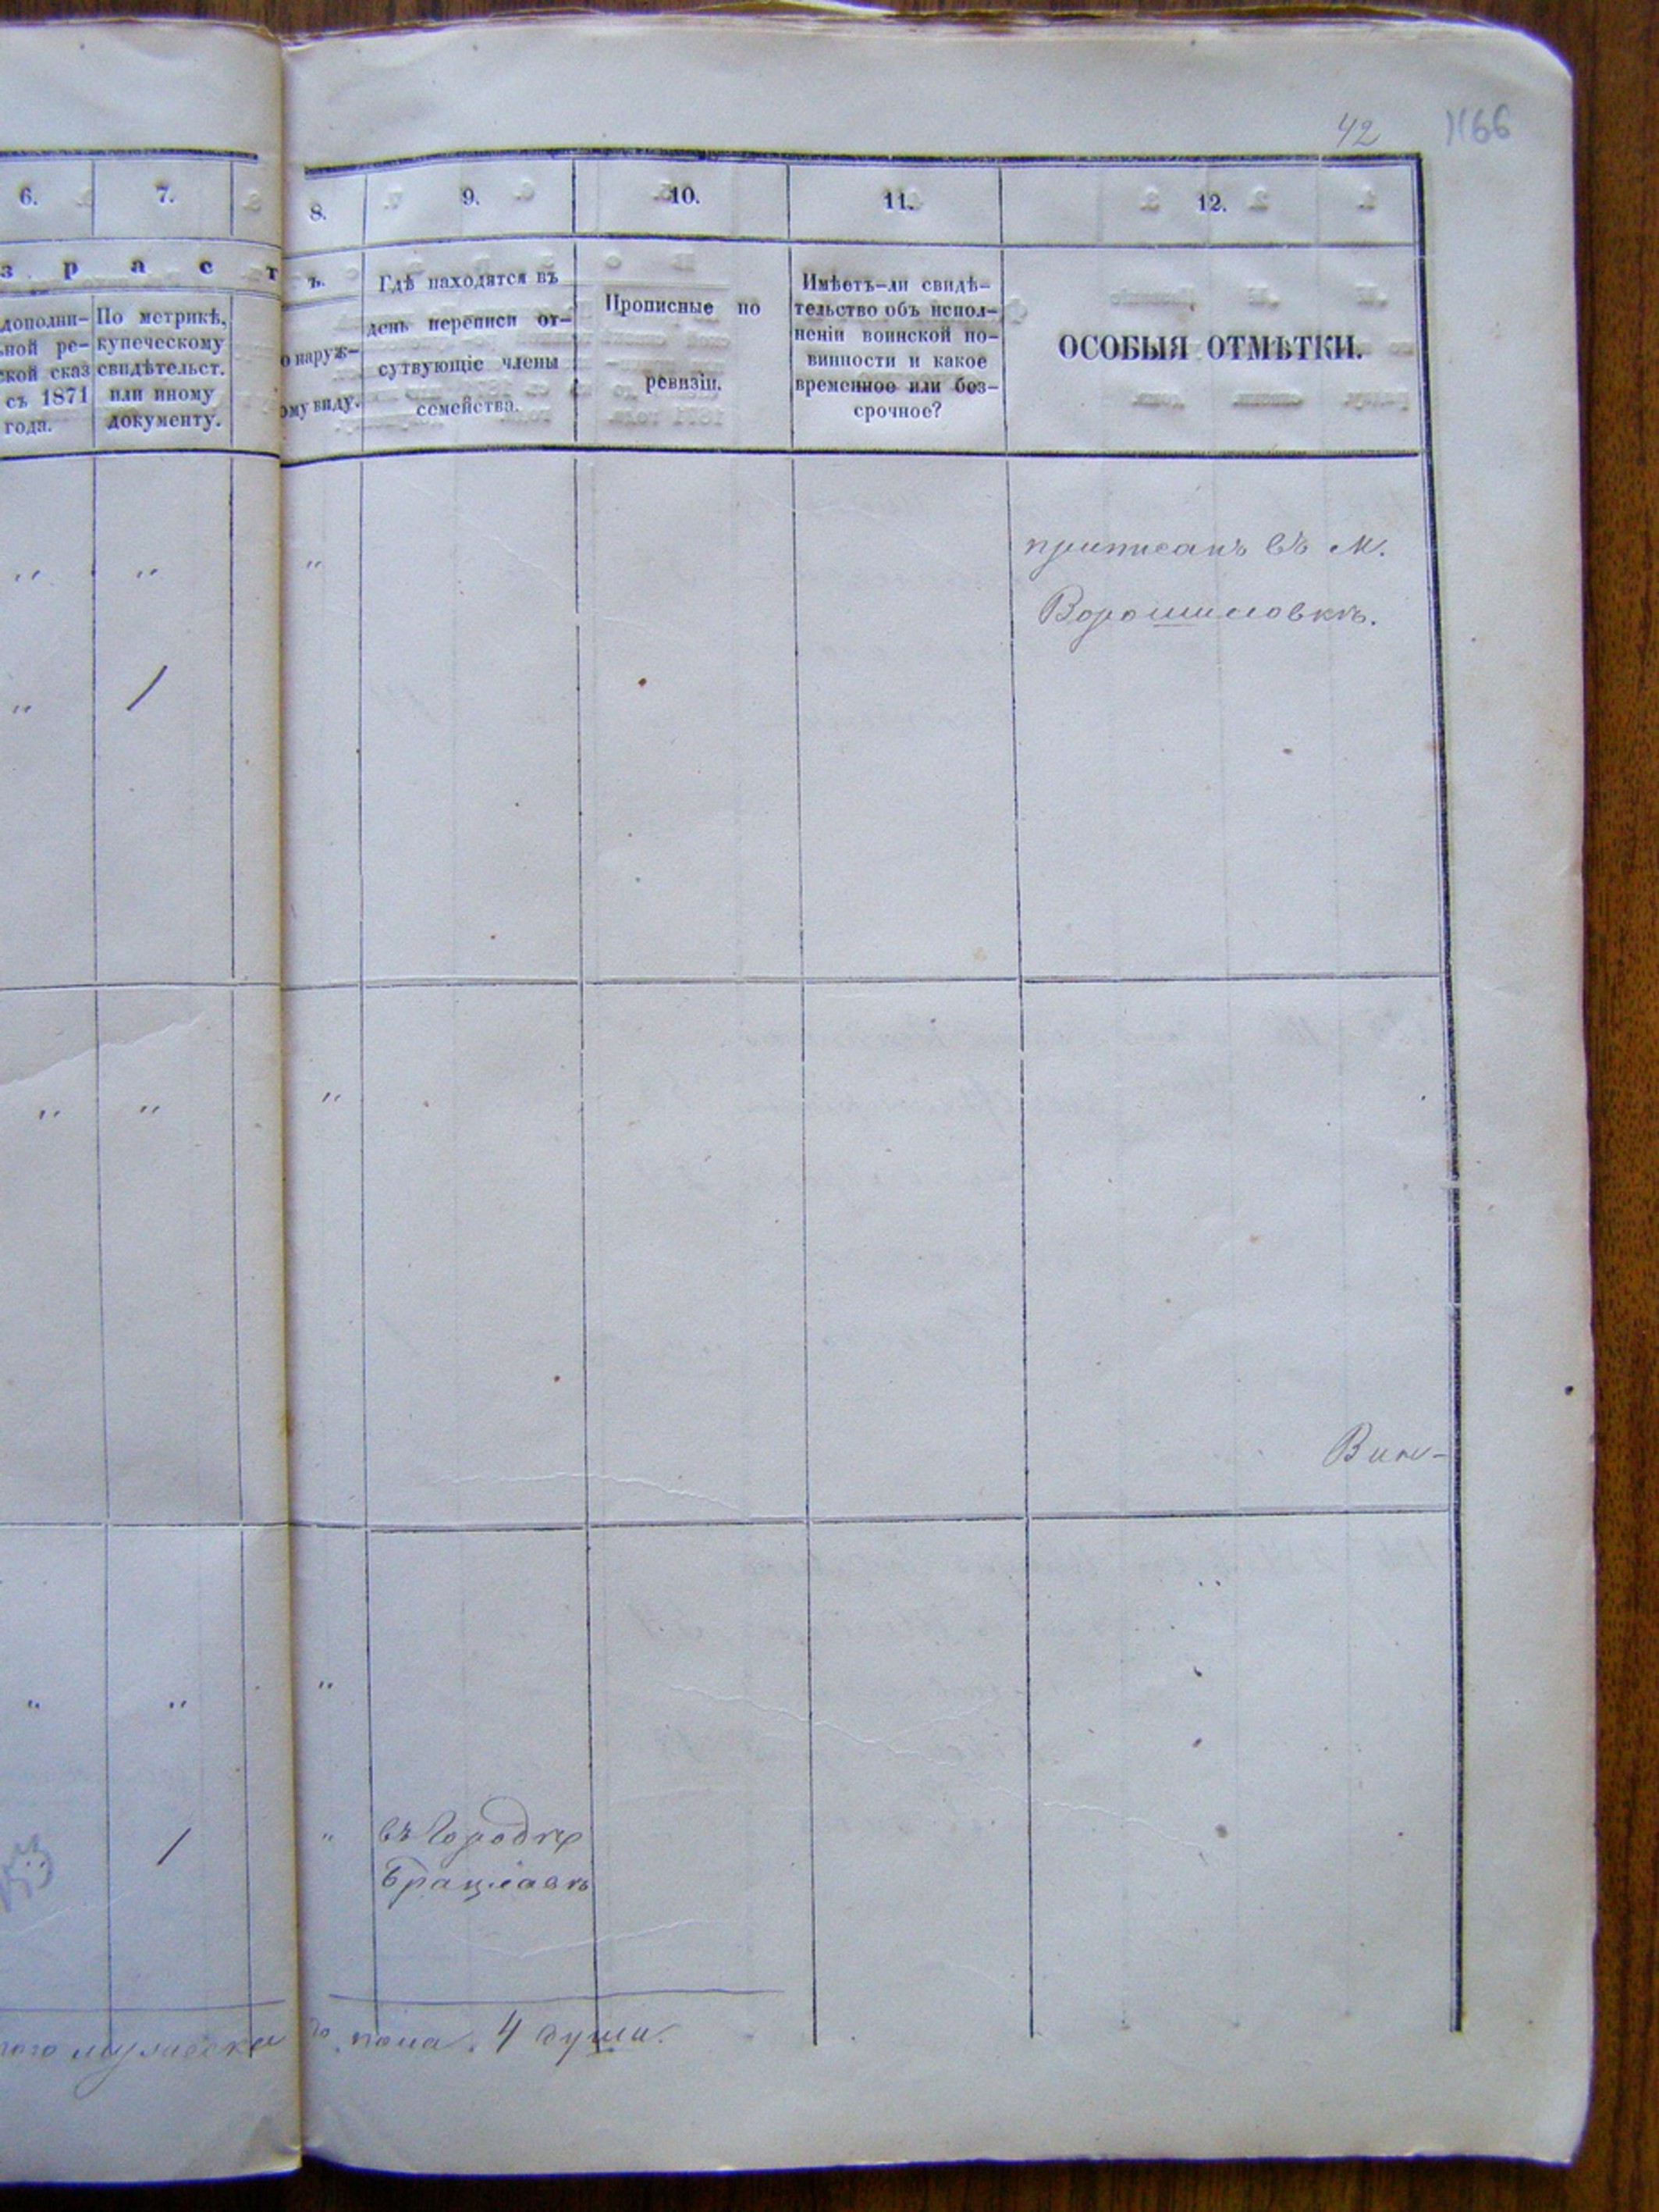 42 1166
6. 7. 8. 9. 10. 11. 12.
з р а с т ъ.
дополни-
ной ре-
ской сказ
съ 1871
года.
По метрикѣ,
купеческому
свидѣтельст.
или иному
документу.
о наруж-
ому виду.
Гдѣ находятся въ
день переписи от-
сутвующіе члены
семейства.
Прописные по
ревизіи.
Имѣетъ-ли свидѣ-
тельство объ испол-
неніи воинской по-
винности и какое
временное или без-
срочное?
ОСОБЫЯ ОТМѢТКИ.
" " "
приписанъ въ м.
Ворошиловкѣ.
" /
" " "
Вин-
" " "
/ "
въ Городкѣ
Брацлавѣ
го мужеска
го пола. 4 души.